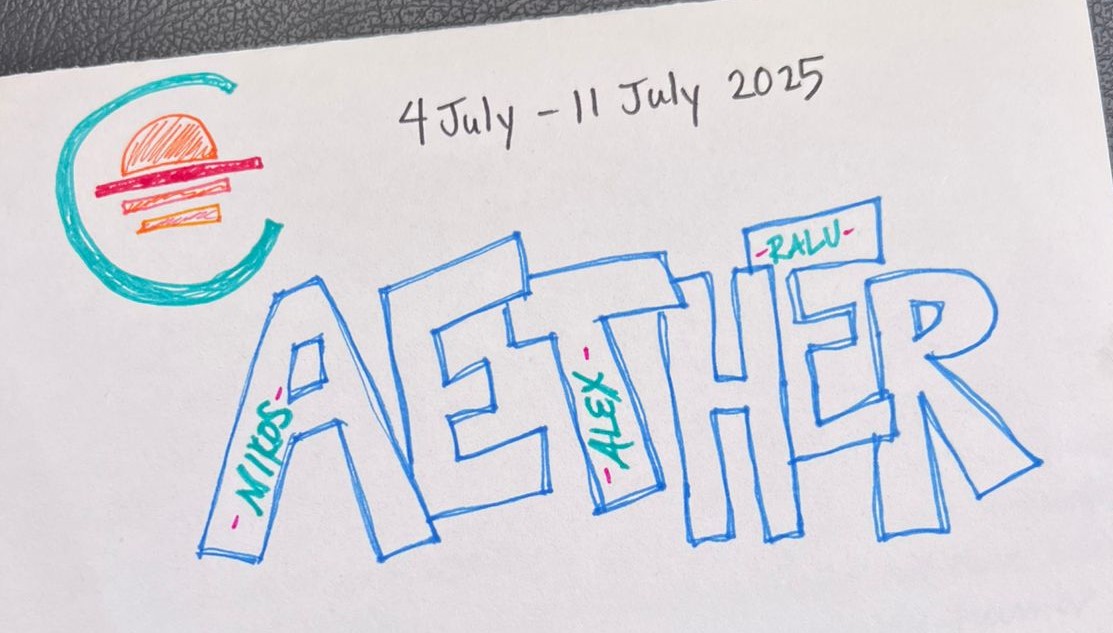 4 July - 11 July 2025
AETHER
-NIKOS-
-ALEX-
-RALU-